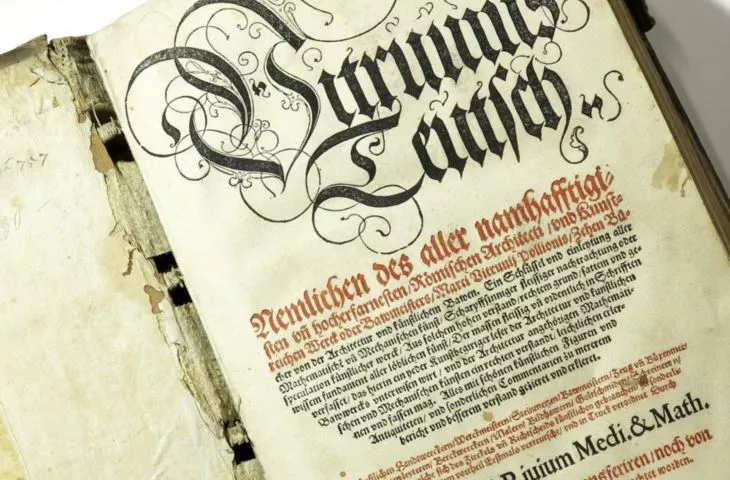 Vitruuius
Teutsch.
Nemlichen des aller namhafftigi-
sten vñ hocherfarnesten / Römischen Architecti / vnd Kunst-
reichen Werck oder Bawmeisters / Marci Vitruuij Pollionis / Zehen Bü-
cher von der Architectur vnd künstlichem Bawen. Ein Schlüssel vnd einleytung aller
Mathematischẽ vñ Mechanischen künst / Scharpffsinniger fleissiger nachtrachtung oder
speculation künstlicher werck / Aus solchem hohen verstand / rechtem grund / satten vnd ge-
wissem fundament aller löblichen künst / Der massen fleissig vñ ordenlich in Schrifften
verfasset / das hierin ein yeder Kunstbegiriger leser / der Architectur vnd kunstlichen
Bawwercks vnterwisen wirt / vnd der Architectur angehörigen Mathemati-
schen vnd Mechanischen künsten ein rechten verstandt / leichtlichen erler-
nen vnd fassen mag. Alles mit schönen künstlichen Figuren vnd
Antiquiteten / vnd sonderlichen Commentarien zu mererem
bericht vnd besserem verstand gezieret vnd erkleret.
künstlichen Handtwerckern / Werckmeistern / Steinmetzen / Bawmeistern / Zeug vñ Büxenmei-
Berckwercken / Malern / Bildhawern / Goltschmiden / Schreinern /
sich des Zirckels vñ Richtscheids künstlichen gebrauchen / sonderlich
vortheil Erstmals verteutscht / vnd in Truck verordnet Durch
Riuium Medi. & Math.
transferiren / noch von
worden.
1757